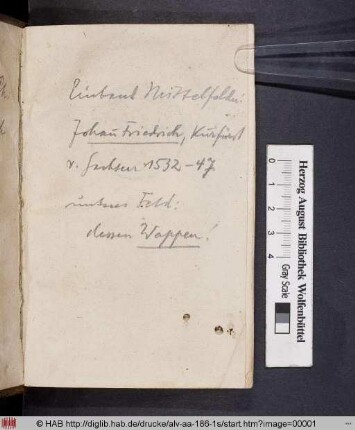 Einband Mittelfelder:
Johann Friedrich, Kurfürst
v. Sachsen 1532-47
unteres Feld:
dessen Wappen!
Herzog August Bibliothek Wolfenbüttel
0 1 2 3 4
Gray Scale
© HAB http://diglib.hab.de/drucke/alv-aa-186-1s/start.htm?image=00001